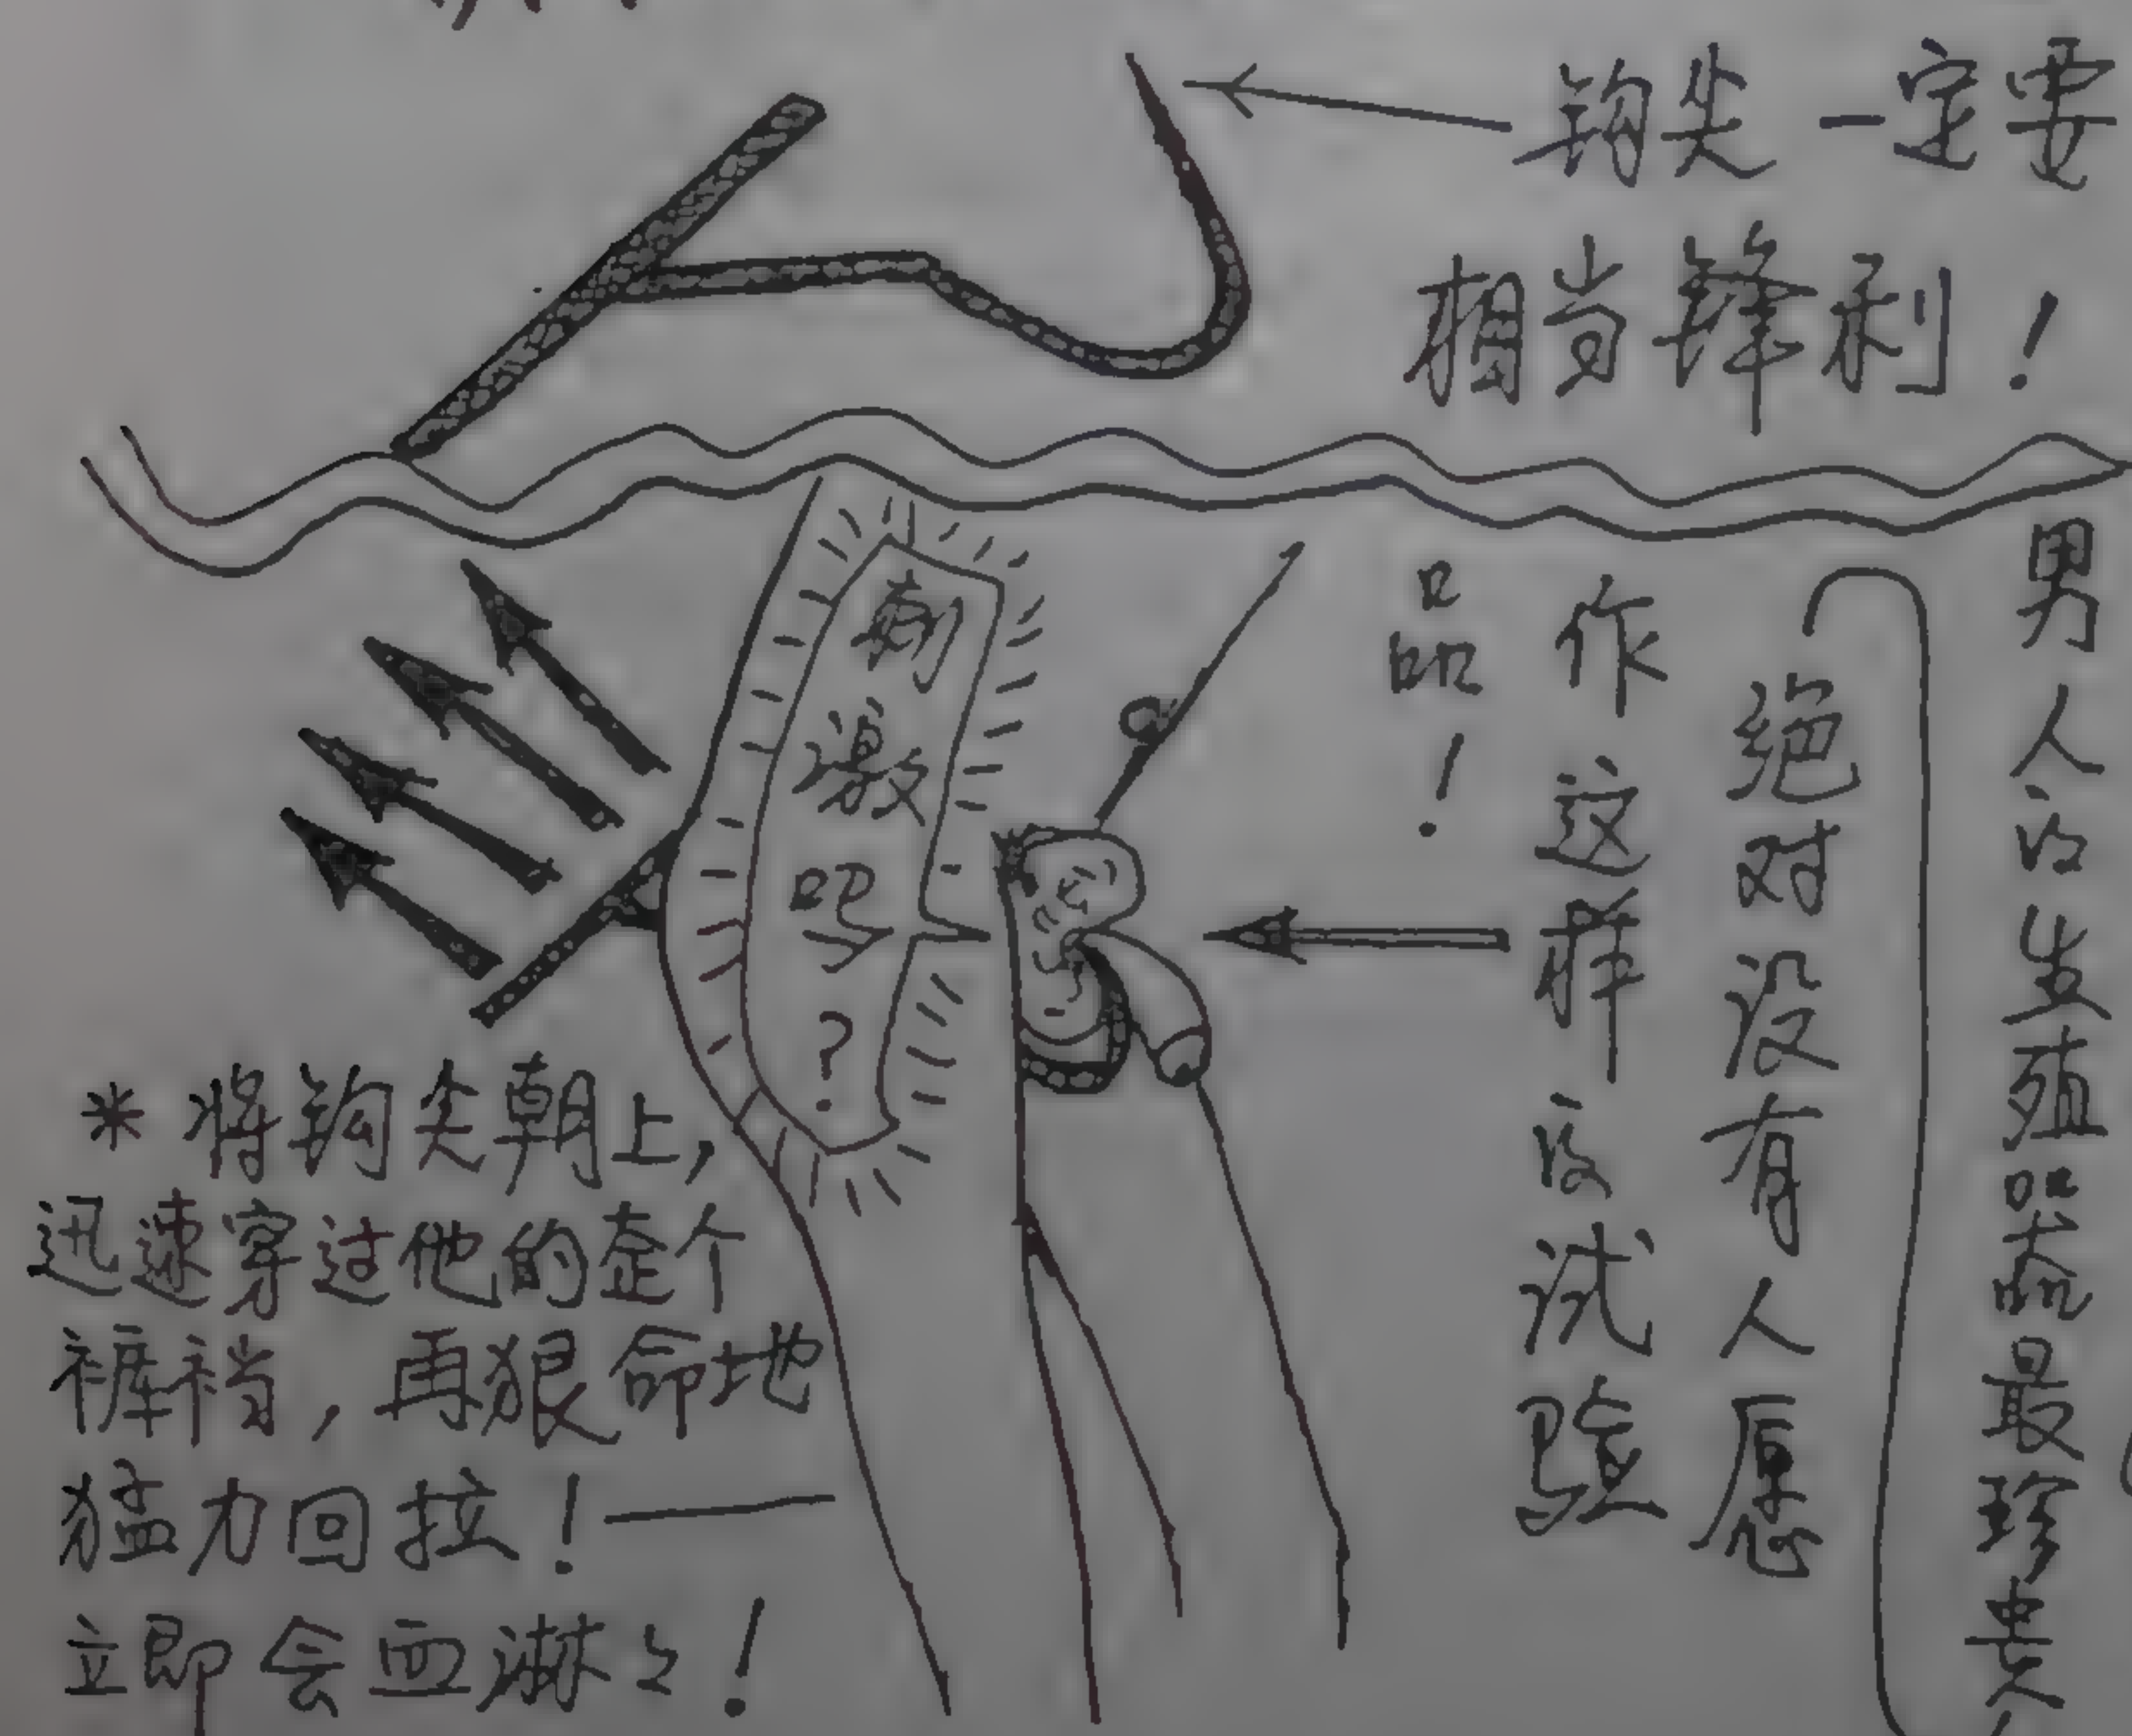 钩尖一定要
相当锋利！
男人的生殖器最珍贵
绝对没有人愿
作这样的试验
品！
刺激吧？
*将钩尖朝上，
迅速穿过他的歪个
裤裆，再狠命地
猛力回拉！
立即会血淋々！